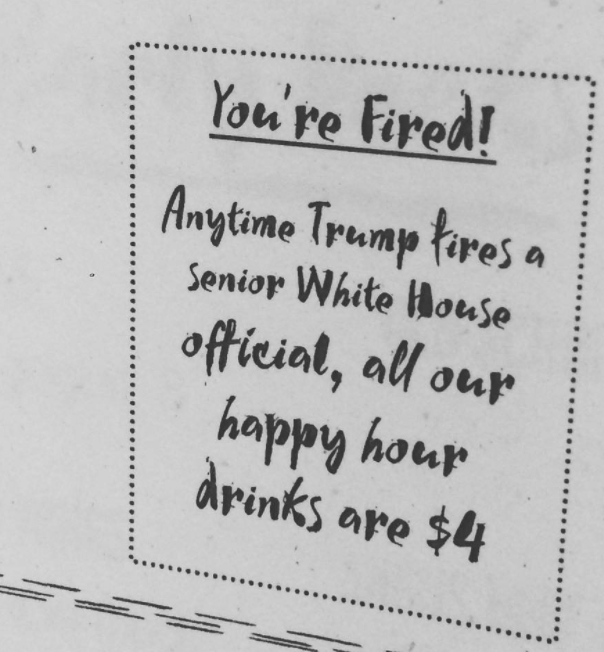 You're Fired!
Anytime Trump fires a
senior White House
official, all our
happy hour
drinks are $4